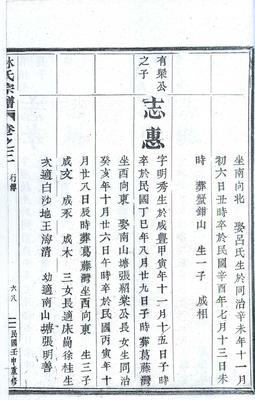 坐南向北　娶呂氏生於同治辛未年十一月
初六日丑時卒於民國辛酉年七月十三日未
時　葬蟹鉗山　生一子　咸相
有樂公
之子
志惠
字明秀生於咸豐甲寅年十一月十五日子時
卒於民國丁巳年八月廿九日子時葬葛藤灣
坐酉向東　娶南山塘張紹棠公長女生同治
癸亥年十月廿六日午時卒於民國丙寅年十
月廿八日辰時葬葛藤灣坐酉向東　生三子
咸文　咸永　咸木　三女長適床崗徐桂生
次適白沙地王海清　幼適南山塘張明善
林氏宗譜
卷之三
行傳
六八
民國壬申重修